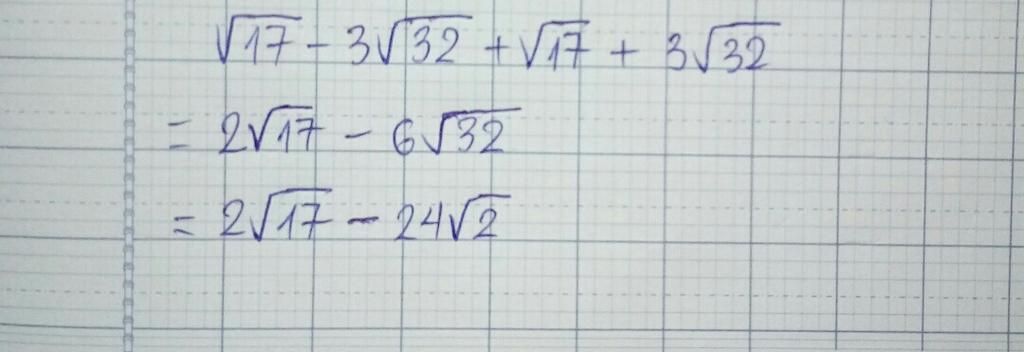 √17 - 3√32 + √17 + 3√32
= 2√17 - 6√32
= 2√17 - 24√2